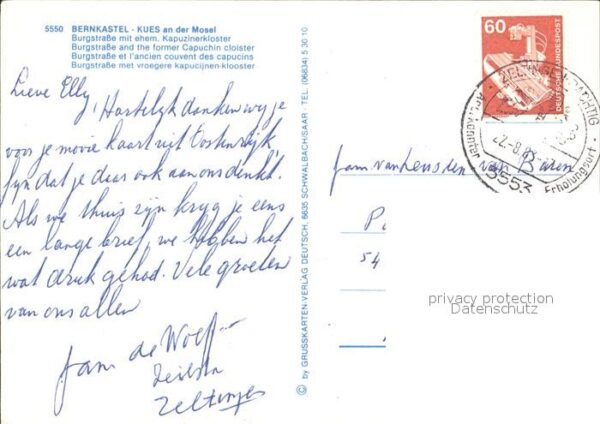 5550 BERNKASTEL - KUES an der Mosel
Burgstraße mit ehem. Kapuzinerkloster
Burgstraße and the former Capuchin cloister
Burgstraße et l'ancien couvent des capucins
Burgstraße met vroegere kapucijnen-klooster
Lieve Elly,
Hartelijk danken wij je
voor je mooie kaart uit Oostenrijk,
fijn dat je daar ook aan ons denkt.
Als we thuis zijn krijg je eens
een lange brief, we hebben het
wat druk gehad. Vele groeten
van ons allen
fam de Wolff
Zeltingen
© by GRUSSKARTEN-VERLAG DEUTSCH, 6635 SCHWALBACH/SAAR · TEL. (06834) 5 30 10
60
DEUTSCHE BUNDESPOST
ZELTINGEN-RACHTIG
22.-8.83
5553
Erholungsort
Fam van
P.
54
privacy protection
Datenschutz